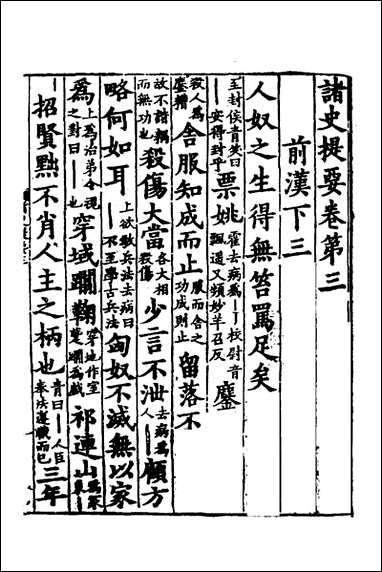 諸史提要卷第三
前漢下三
人奴之生得無笞罵足矣
王封侯青笑曰
一安得封乎票姚霍去病為丨丨校尉音
飄遥又頻妙羊召反鏖
殺人為
鏖糟舍服知成而止服而舍之
功成則止留落不
故不諧耦
而無功也殺傷大當各大相
殺傷少言不泄去病為
人丨丨顧方
略何如耳上欲教兵法去病曰
丨丨不至學古兵法匈奴不滅無以家
為上為治第令視
之對曰丨丨也穿域蹋鞠穿地作室
蹋為戲祁連山為冢
招賢黜不肖人主之柄也青曰丨人臣
奉法遵職而已三年